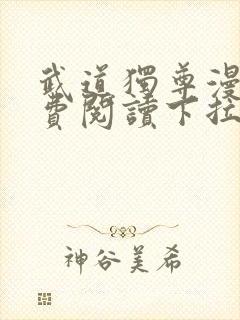 武道獨尊漫
費閱讀下拉
神谷美希